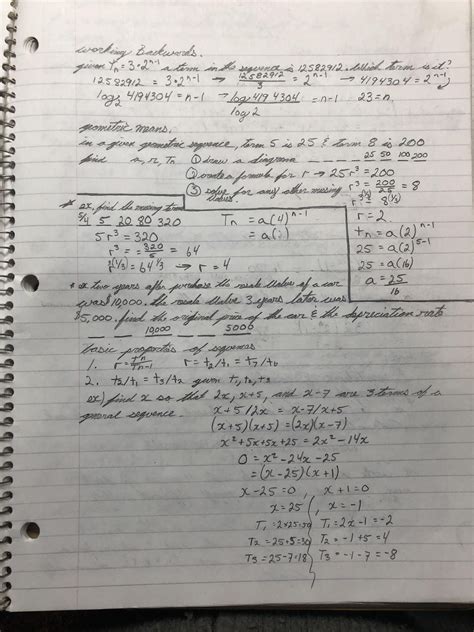 working Backwords.
given Tn = 3·2^n-1 a term in the sequence is 12582912. Which term is it?
12582912 = 3·2^n-1 → 12582912/3 = 2^n-1 → 4194304 = 2^n-1
log2 4194304 = n-1 → log 4194304/log2 = n-1 23 = n
geometric means.
in a given geometric sequence, term 5 is 25 & term 8 is 200
find a, r, Tn ① draw a diagram 25 50 100 200
② write a formula for r → 25r³ = 200
③ solve for any other missing values. r³ = 200/25 = 8
r^3(1/3) = 8^(1/3)
r = 2
tn = a(2)^n-1
25 = a(2)^5-1
25 = a(16)
a = 25/16
* ex, find the missing terms
5/4 5 20 80 320 Tn = a(4)^n-1
5r³ = 320 = a( )
r³ = 320/5 = 64
r^3(1/3) = 64^1/3 → r = 4
two years after purchase the resale value of a car
was $10,000. the resale value 3 years later was
$5,000. find the original price of the car & the depreciation rate
10,000 5000
basic properties of sequences
1. r = tn/tn-1 r = t2/t1 = t7/t6
2. t2/t1 = t3/t2 given t1, t2, t3
ex) find x so that 2x, x+5, and x-7 are 3 terms of a
sequence.
x+5/2x = x-7/x+5
(x+5)(x+5) = (2x)(x-7)
x²+5x+5x+25 = 2x²-14x
0 = x²-24x-25
= (x-25)(x+1)
x-25=0, x+1=0
x=25, x=-1
T1 = 2×25=50 T1 = 2x-1 = -2
T2 = 25+5=30 T2 = -1+5 = 4
T3 = 25-7=18 T3 = -1-7 = -8